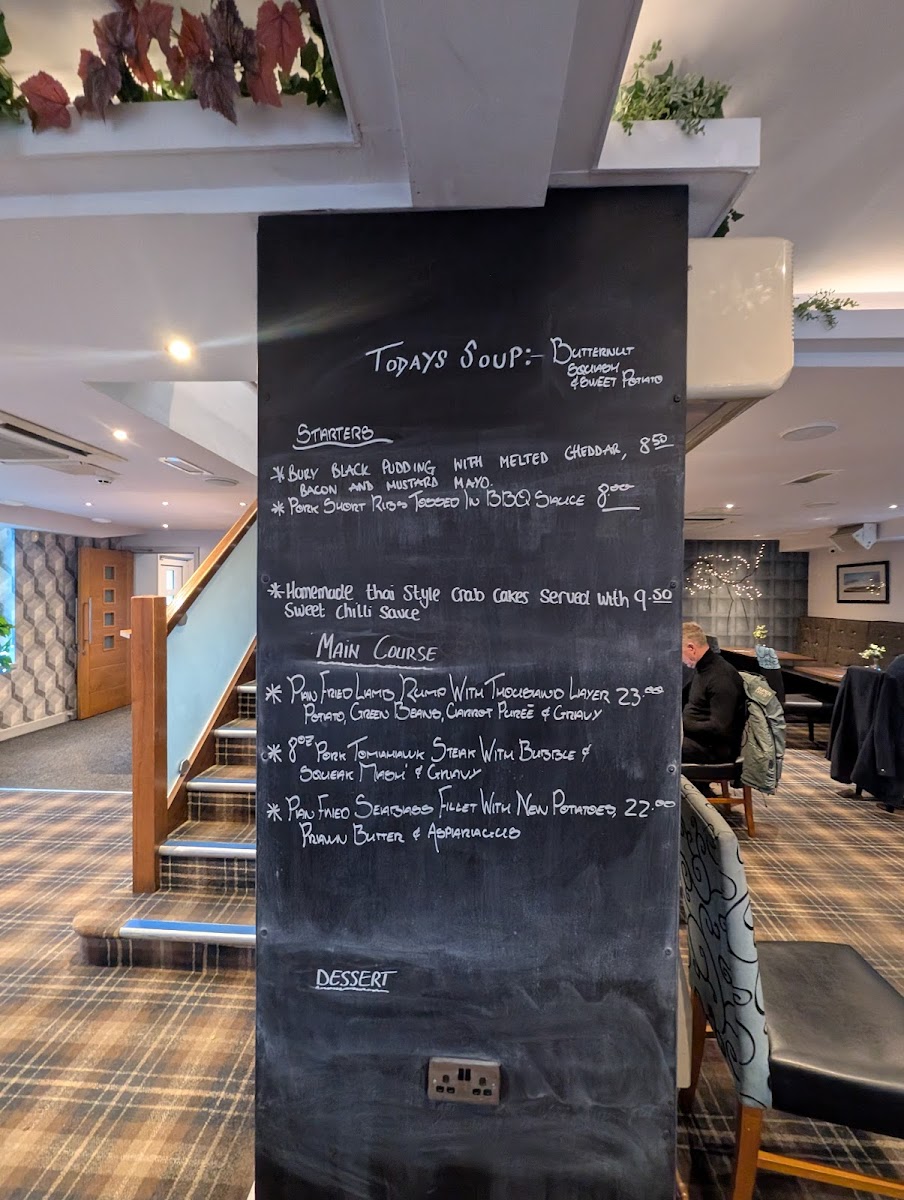 TODAYS SOUP:- BUTTERNUT
SQUASH
& SWEET POTATO
STARTERS
* BURY BLACK PUDDING WITH MELTED CHEDDAR, 8.50
BACON AND MUSTARD MAYO.
* PORK SHORT RIBS TOSSED IN BBQ SAUCE 8.00
* Homemade thai style crab cakes served with 9.50
sweet chilli sauce
MAIN COURSE
* PAN FRIED LAMB RUMP WITH THOUSAND LAYER 23.00
POTATO, GREEN BEANS, CARROT PUREÉ & GRAVY
* 8oz PORK TOMAHAWK STEAK WITH BUBBLE &
SQUEAK MASH & GRAVY
* PAN FRIED SEABASS FILLET WITH NEW POTATOES, 22.00
PRAWN BUTTER & ASPARAGUS
DESSERT